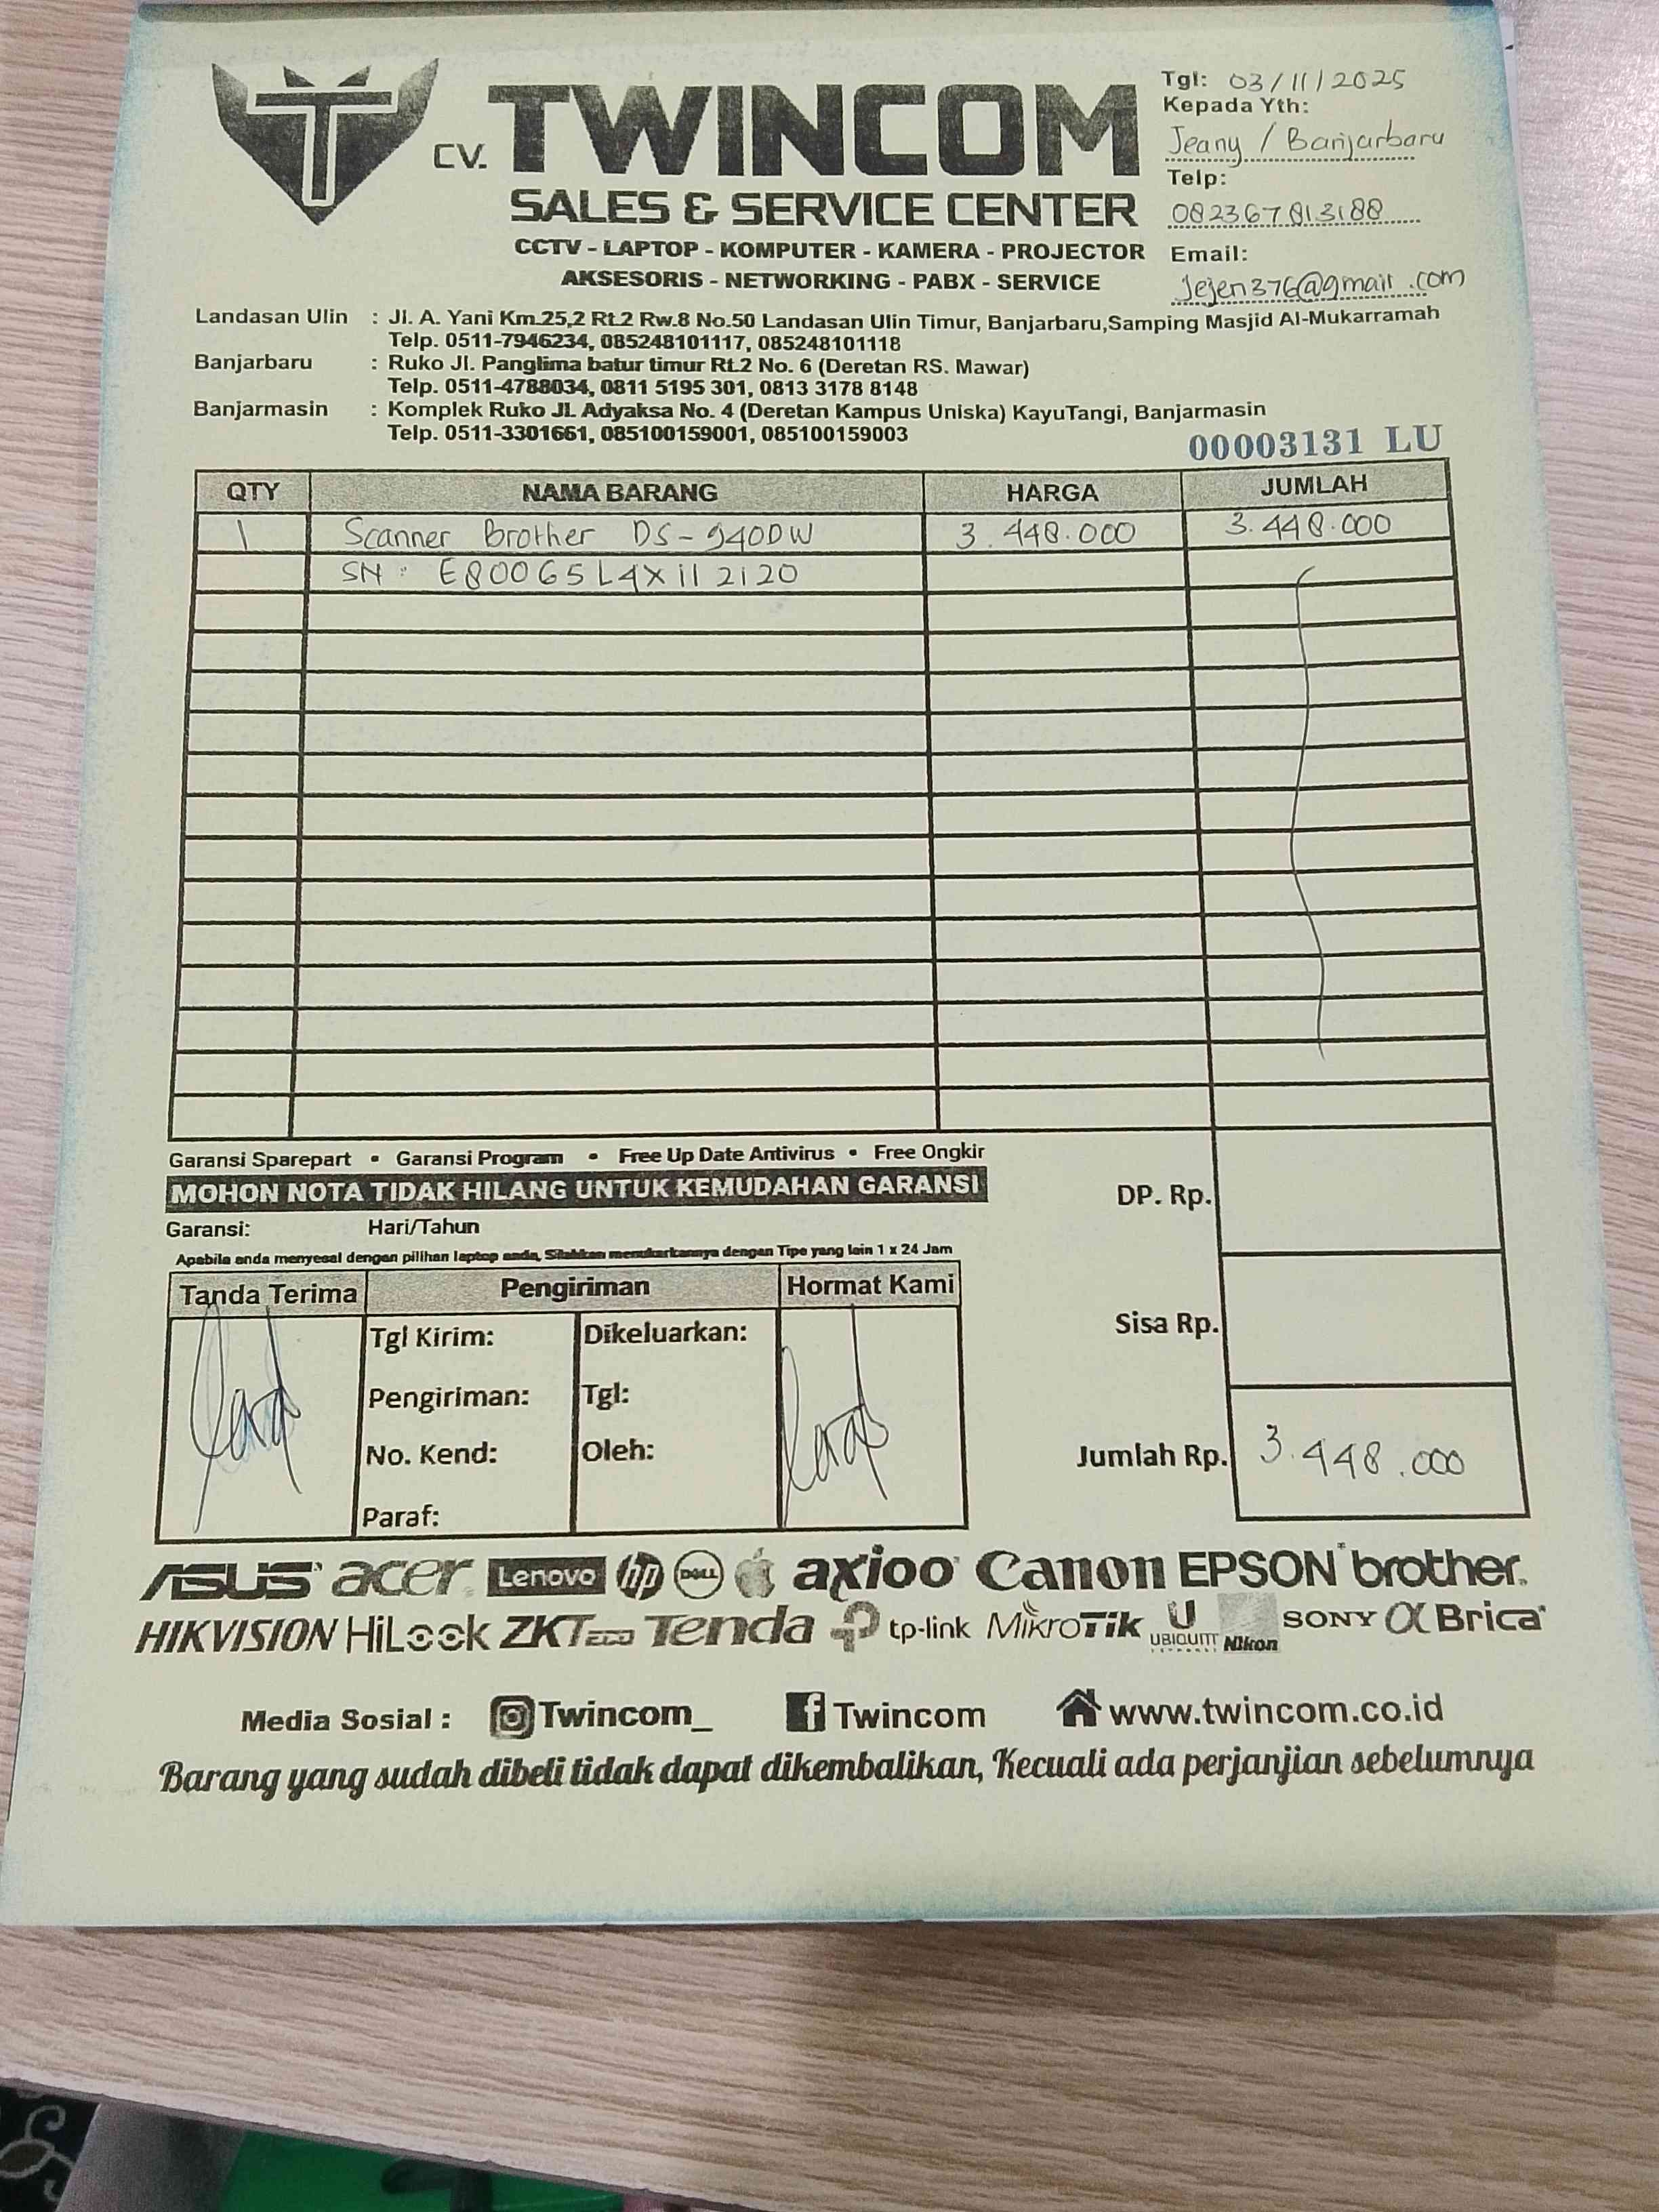 CV. TWINCOM
SALES & SERVICE CENTER
CCTV - LAPTOP - KOMPUTER - KAMERA - PROJECTOR
AKSESORIS - NETWORKING - PABX - SERVICE
Tgl: 03/11/2025
Kepada Yth:
Jeany / Banjarbaru
Telp:
082367813188
Email:
Jejen376@gmail.com
Landasan Ulin : Jl. A. Yani Km.25,2 Rt.2 Rw.8 No.50 Landasan Ulin Timur, Banjarbaru,Samping Masjid Al-Mukarramah
Telp. 0511-7946234, 085248101117, 085248101118
Banjarbaru : Ruko Jl. Panglima batur timur Rt.2 No. 6 (Deretan RS. Mawar)
Telp. 0511-4788034, 0811 5195 301, 0813 3178 8148
Banjarmasin : Komplek Ruko Jl. Adyaksa No. 4 (Deretan Kampus Uniska) KayuTangi, Banjarmasin
Telp. 0511-3301661, 085100159001, 085100159003
00003131 LU
QTY NAMA BARANG HARGA JUMLAH
1 Scanner Brother DS-940DW 3.448.000 3.448.000
SN : E80065L4X112120
Garansi Sparepart • Garansi Program • Free Up Date Antivirus • Free Ongkir
MOHON NOTA TIDAK HILANG UNTUK KEMUDAHAN GARANSI
Garansi: Hari/Tahun
Apabila anda menyesal dengan pilihan laptop anda, Silahkan menukarkannya dengan Tipe yang lain 1 x 24 Jam
DP. Rp.
Sisa Rp.
Jumlah Rp. 3.448.000
Tanda Terima Pengiriman Hormat Kami
Tgl Kirim: Dikeluarkan:
Pengiriman: Tgl:
No. Kend: Oleh:
Paraf:
ASUS acer Lenovo hp DELL axioo Canon EPSON brother
HIKVISION HiLook ZKTeco Tenda tp-link MikroTik U UBIQUITI Nikon SONY α Brica
Media Sosial : Twincom_ f Twincom www.twincom.co.id
Barang yang sudah dibeli tidak dapat dikembalikan, Kecuali ada perjanjian sebelumnya